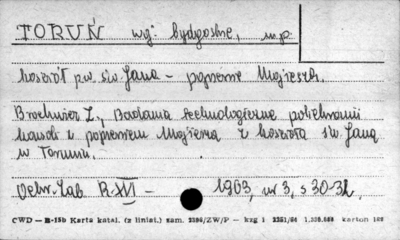 TORUŃ wg: bydgoskie, m.p.
kościół p.w. św. Jana - popiersie Mojżesza.
Brochwicz Z., Badania technologiczne polichromii
kamiennej z popiersiem Mojżesza z kościoła św. Jana
w Toruniu.
Ochr. Zab. R. XVI - 1963, nr 3, s 30-32,
CWD — B-15b Karta katal. (z liniat.) zam. 3286/ZW/P — kzg 1 2251/54 1,330.868 karton 160